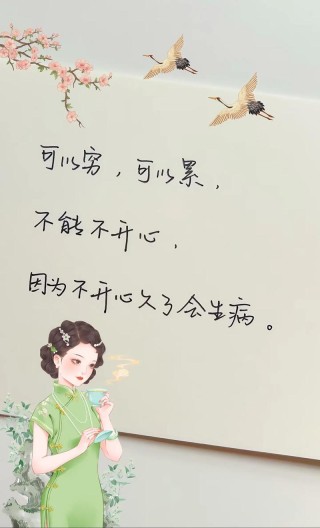 可以穷，可以累，
不能不开心，
因为不开心久了会生病。